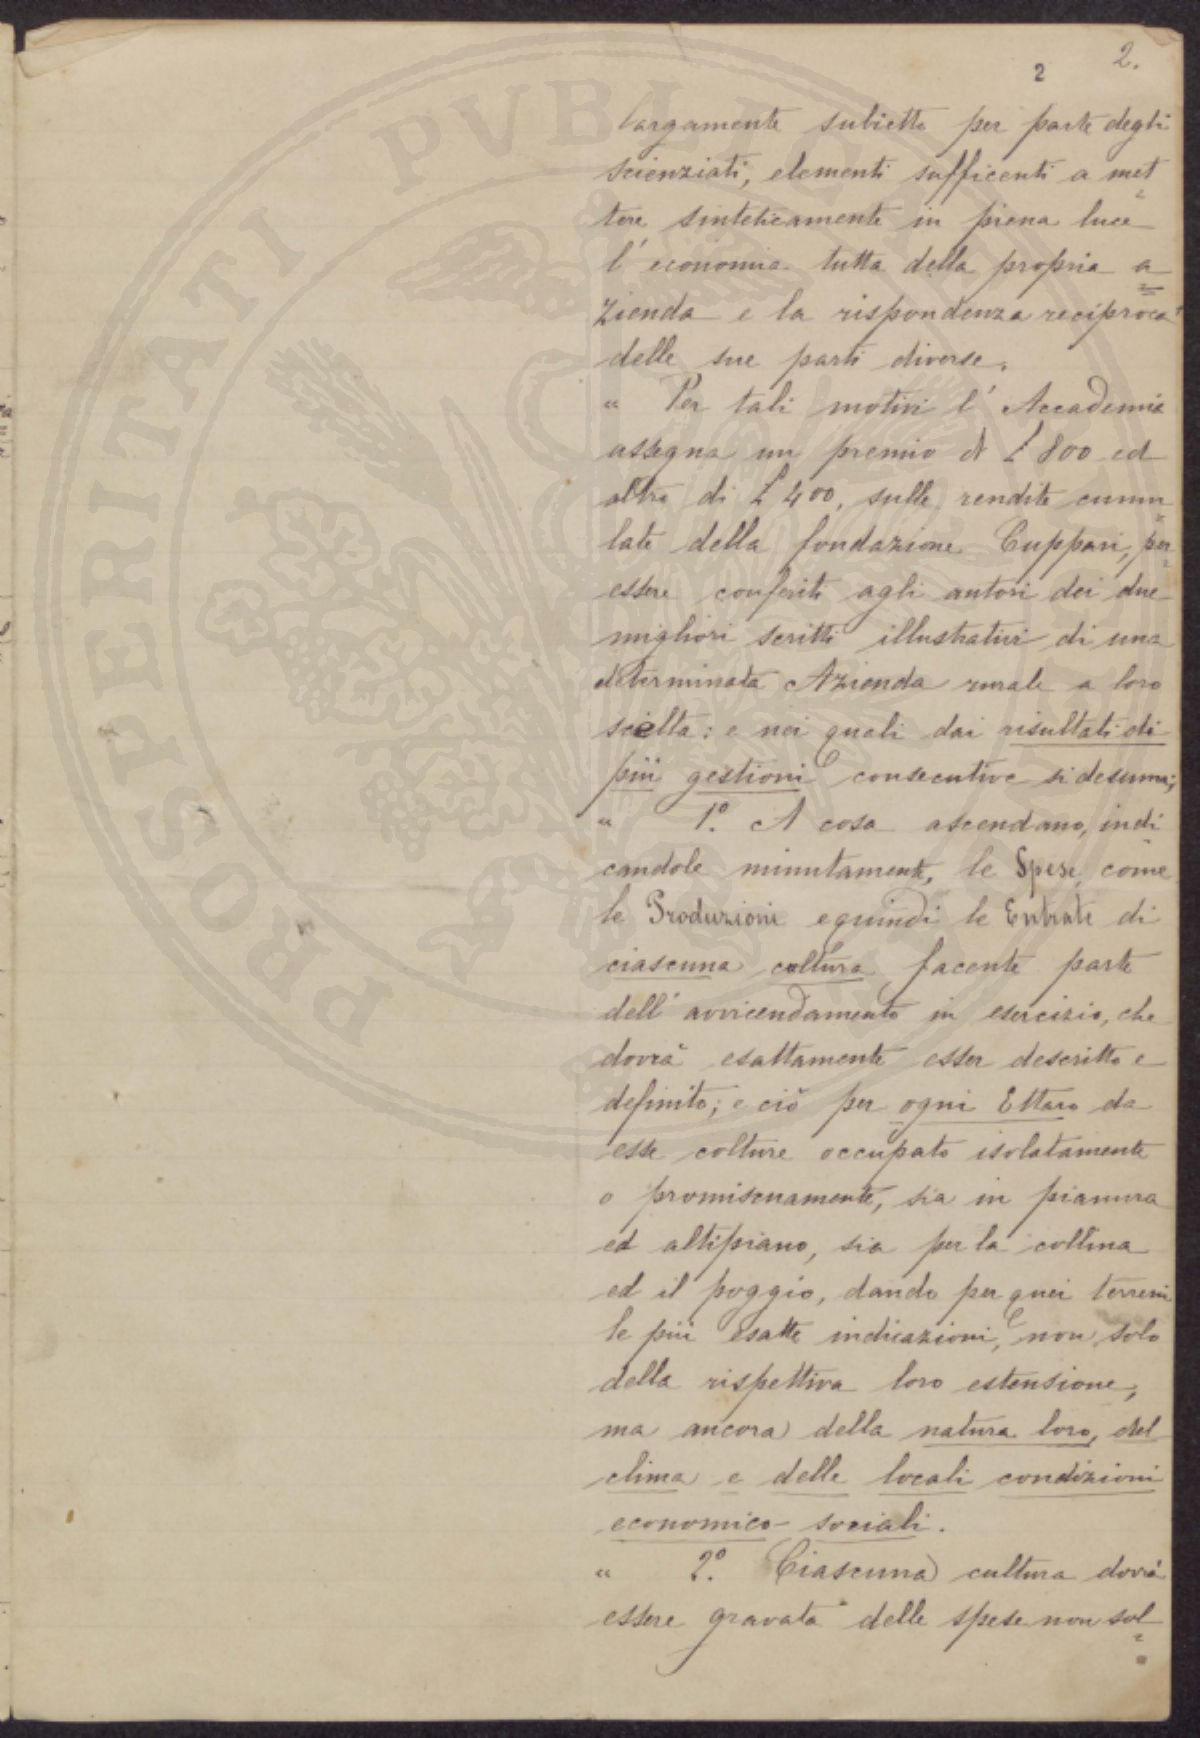 2 2.
largamente subietto per parte degli
scienziati, elementi sufficenti a met
tere sinteticamente in piena luce
l'economia tutta della propria a
zienda e la rispondenza reciproca
delle sue parti diverse.
" Per tali motivi l'Accademia
assegna un premio di £ 800 ed
altro di £ 400, sulle rendite cumu
late della fondazione Cuppari, per
essere conferiti agli autori dei due
migliori scritti illustrativi di una
determinata Azienda rurale a loro
scielta: e nei quali dai risultati di
più gestioni consecutive si desuma;
" 1º. A cosa ascendano, indi
candole minutamente, le Spese, come
le Produzioni e quindi le Entrate di
ciascuna coltura facente parte
dell'avvicendamento in esercizio, che
dovrà esattamente esser descritto e
definito; e ciò per ogni Ettaro da
esse colture occupato isolatamente
o promiscuamente, sia in pianura
ed altipiano, sia per la collina
ed il poggio, dando per quei terreni
le più esatte indicazioni, non solo
della rispettiva loro estensione,
ma ancora della natura loro, del
clima e delle locali condizioni
economico-sociali.
" 2º. Ciascuna cultura dovrà
essere gravata delle spese non sol
PROSPERITATI PVBLIC